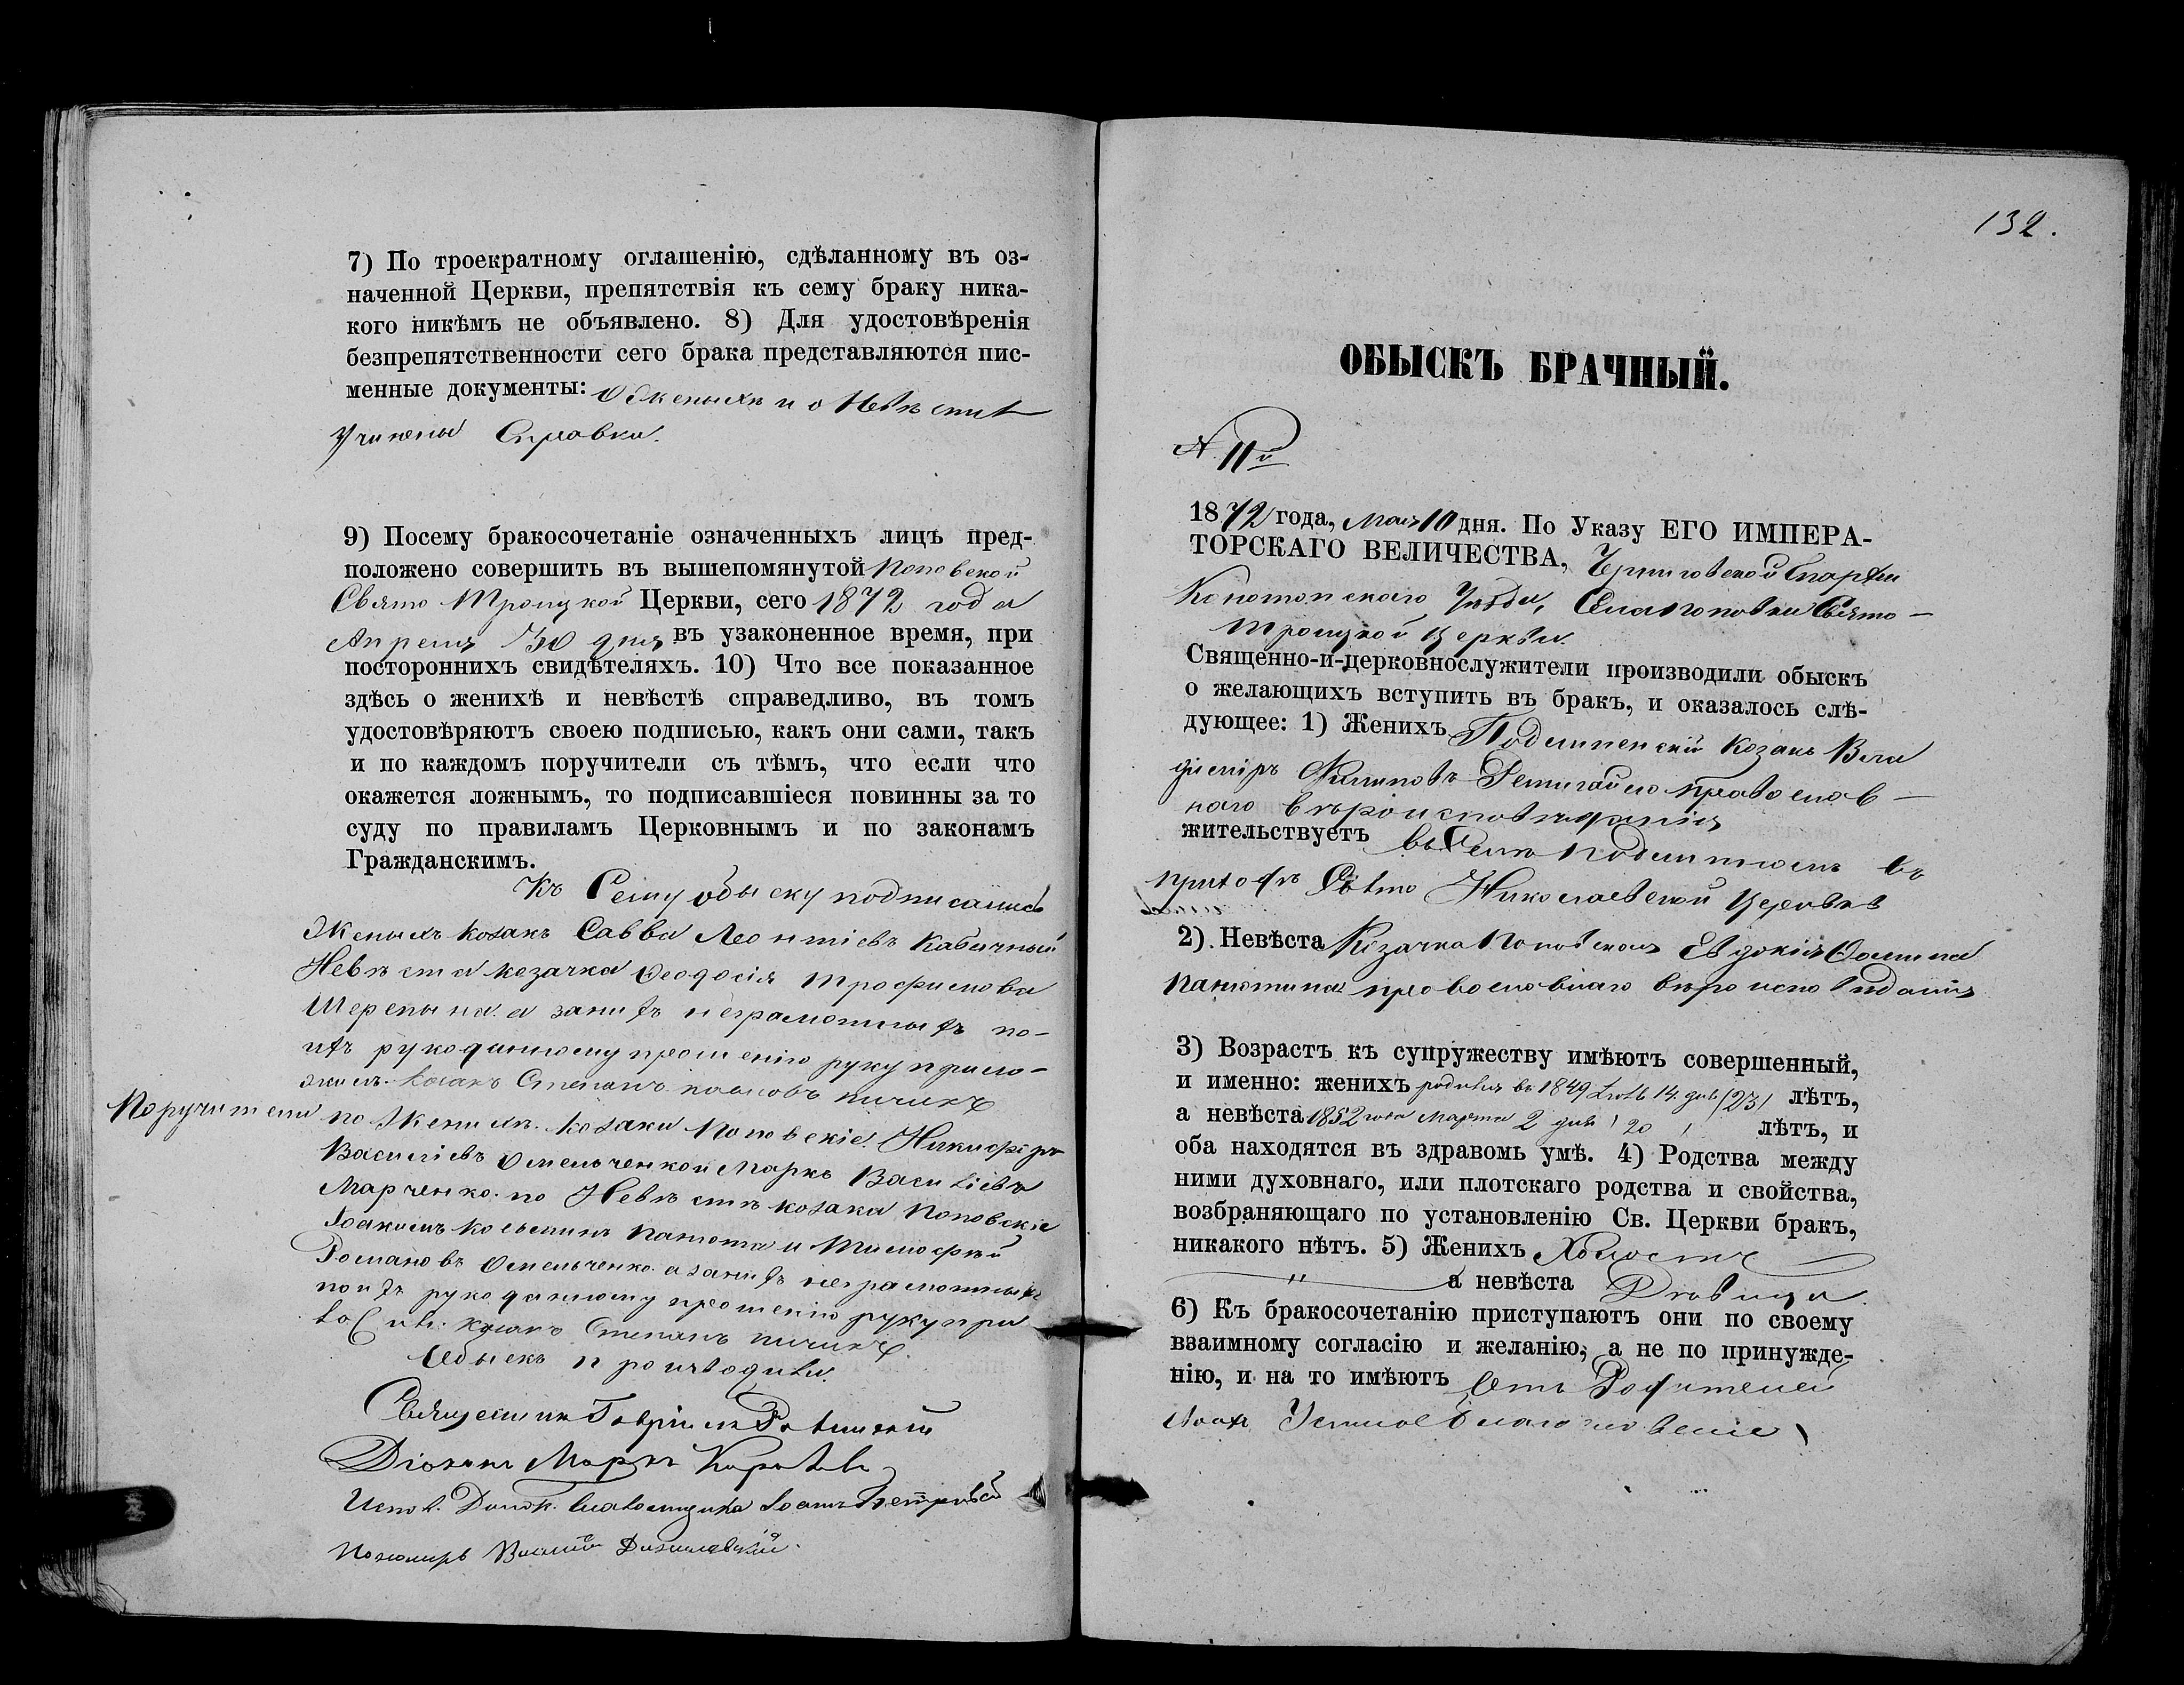 7) По троекратному оглашенію, сдѣланному въ оз-
наченной Церкви, препятствія къ сему браку ника-
кого никѣмъ не объявлено. 8) Для удостовѣренія
безпрепятственности сего брака представляются пис-
менные документы: О женыхѣ и о Невѣстѣ
Учинены Справки.
9) Посему бракосочетаніе означенныхъ лицъ пред-
положено совершить въ вышепомянутой Поповской
Свято Троицкой Церкви, сего 1872 года
Апреля 30 дня въ узаконенное время, при
постороннихъ свидѣтеляхъ. 10) Что все показанное
здѣсь о женихѣ и невѣстѣ справедливо, въ томъ
удостовѣряютъ своею подписью, какъ они сами, такъ
и по каждомъ поручители съ тѣмъ, что если что
окажется ложнымъ, то подписавшіеся повинны за то
суду по правиламъ Церковнымъ и по законамъ
Гражданскимъ.
Къ Сему обыску подписались
Женыхъ козакъ Савва Леонтіевъ Кабичный
Невѣста козачка Феодосія Трофимова
а заних неграмотных по
их рукоданному прошенію руку прило-
жилъ козакъ Степанъ
Поручители по Женихѣ козаки Поповскіе Никифоръ
Василіевъ Омельченко и Маркъ Василіевъ
Марченко. по Невѣстѣ козаки Поповскіе
Іоакимъ Косминъ Панюта и Тимофѣй
Романовъ Омельченко а заних неграмотных
по их рукоданному прошенію руку при
ложилъ козакъ Степанъ
Обыскъ производили.
Священникъ Гавріилъ
Діаконъ Маркъ
Василій
132.
ОБЫСКЪ БРАЧНЫЙ.
№ 11й
1872 года, Мая 10 дня. По Указу ЕГО ИМПЕРА-
ТОРСКАГО ВЕЛИЧЕСТВА, Черниговской Епархіи
Конотопскаго Уѣзда, Села Поповки Свято-
Троицкой Церкви.
Священно-и-церковнослужители производили обыскъ
о желающихъ вступить въ бракъ, и оказалось слѣ-
дующее: 1) Женихъ Подлипенскій Козакъ Вла
диміръ Филиповъ православ-
наго вѣроисповѣданія
жительствуетъ въ Селѣ Подлипномъ въ
приходѣ Свято Николаевской Церкви
2). Невѣста Козачка Поповская Евдокія Фомина
Панютина православнаго вѣроисповѣданія
3) Возрастъ къ супружеству имѣютъ совершенный,
и именно: женихъ родился въ 1849 14. дня (23) лѣтъ,
а невѣста 1852 года Марта 2 дня ( 20 ) лѣтъ, и
оба находятся въ здравомъ умѣ. 4) Родства между
ними духовнаго, или плотскаго родства и свойства,
возбраняющаго по установленію Св. Церкви бракъ,
никакого нѣтъ. 5) Женихъ Холостъ
" а невѣста Дѣвица.
6) Къ бракосочетанію приступаютъ они по своему
взаимному согласію и желанію, а не по принужде-
нію, и на то имѣютъ Отъ Родителей
Своих Устное благословеніе